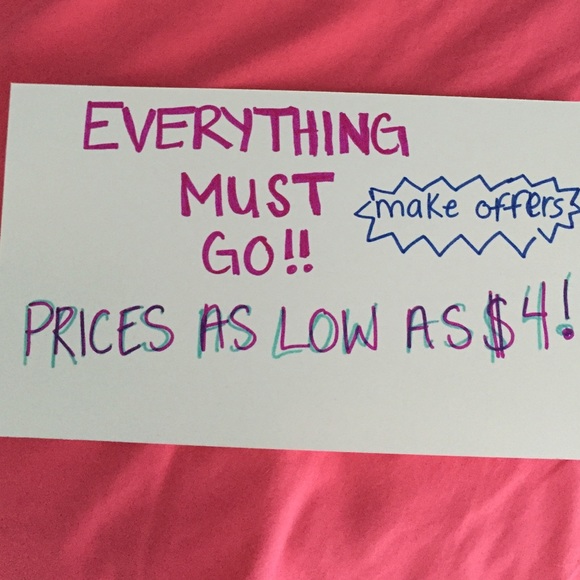 EVERYTHING
MUST
GO!!
make offers
PRICES AS LOW AS $4!